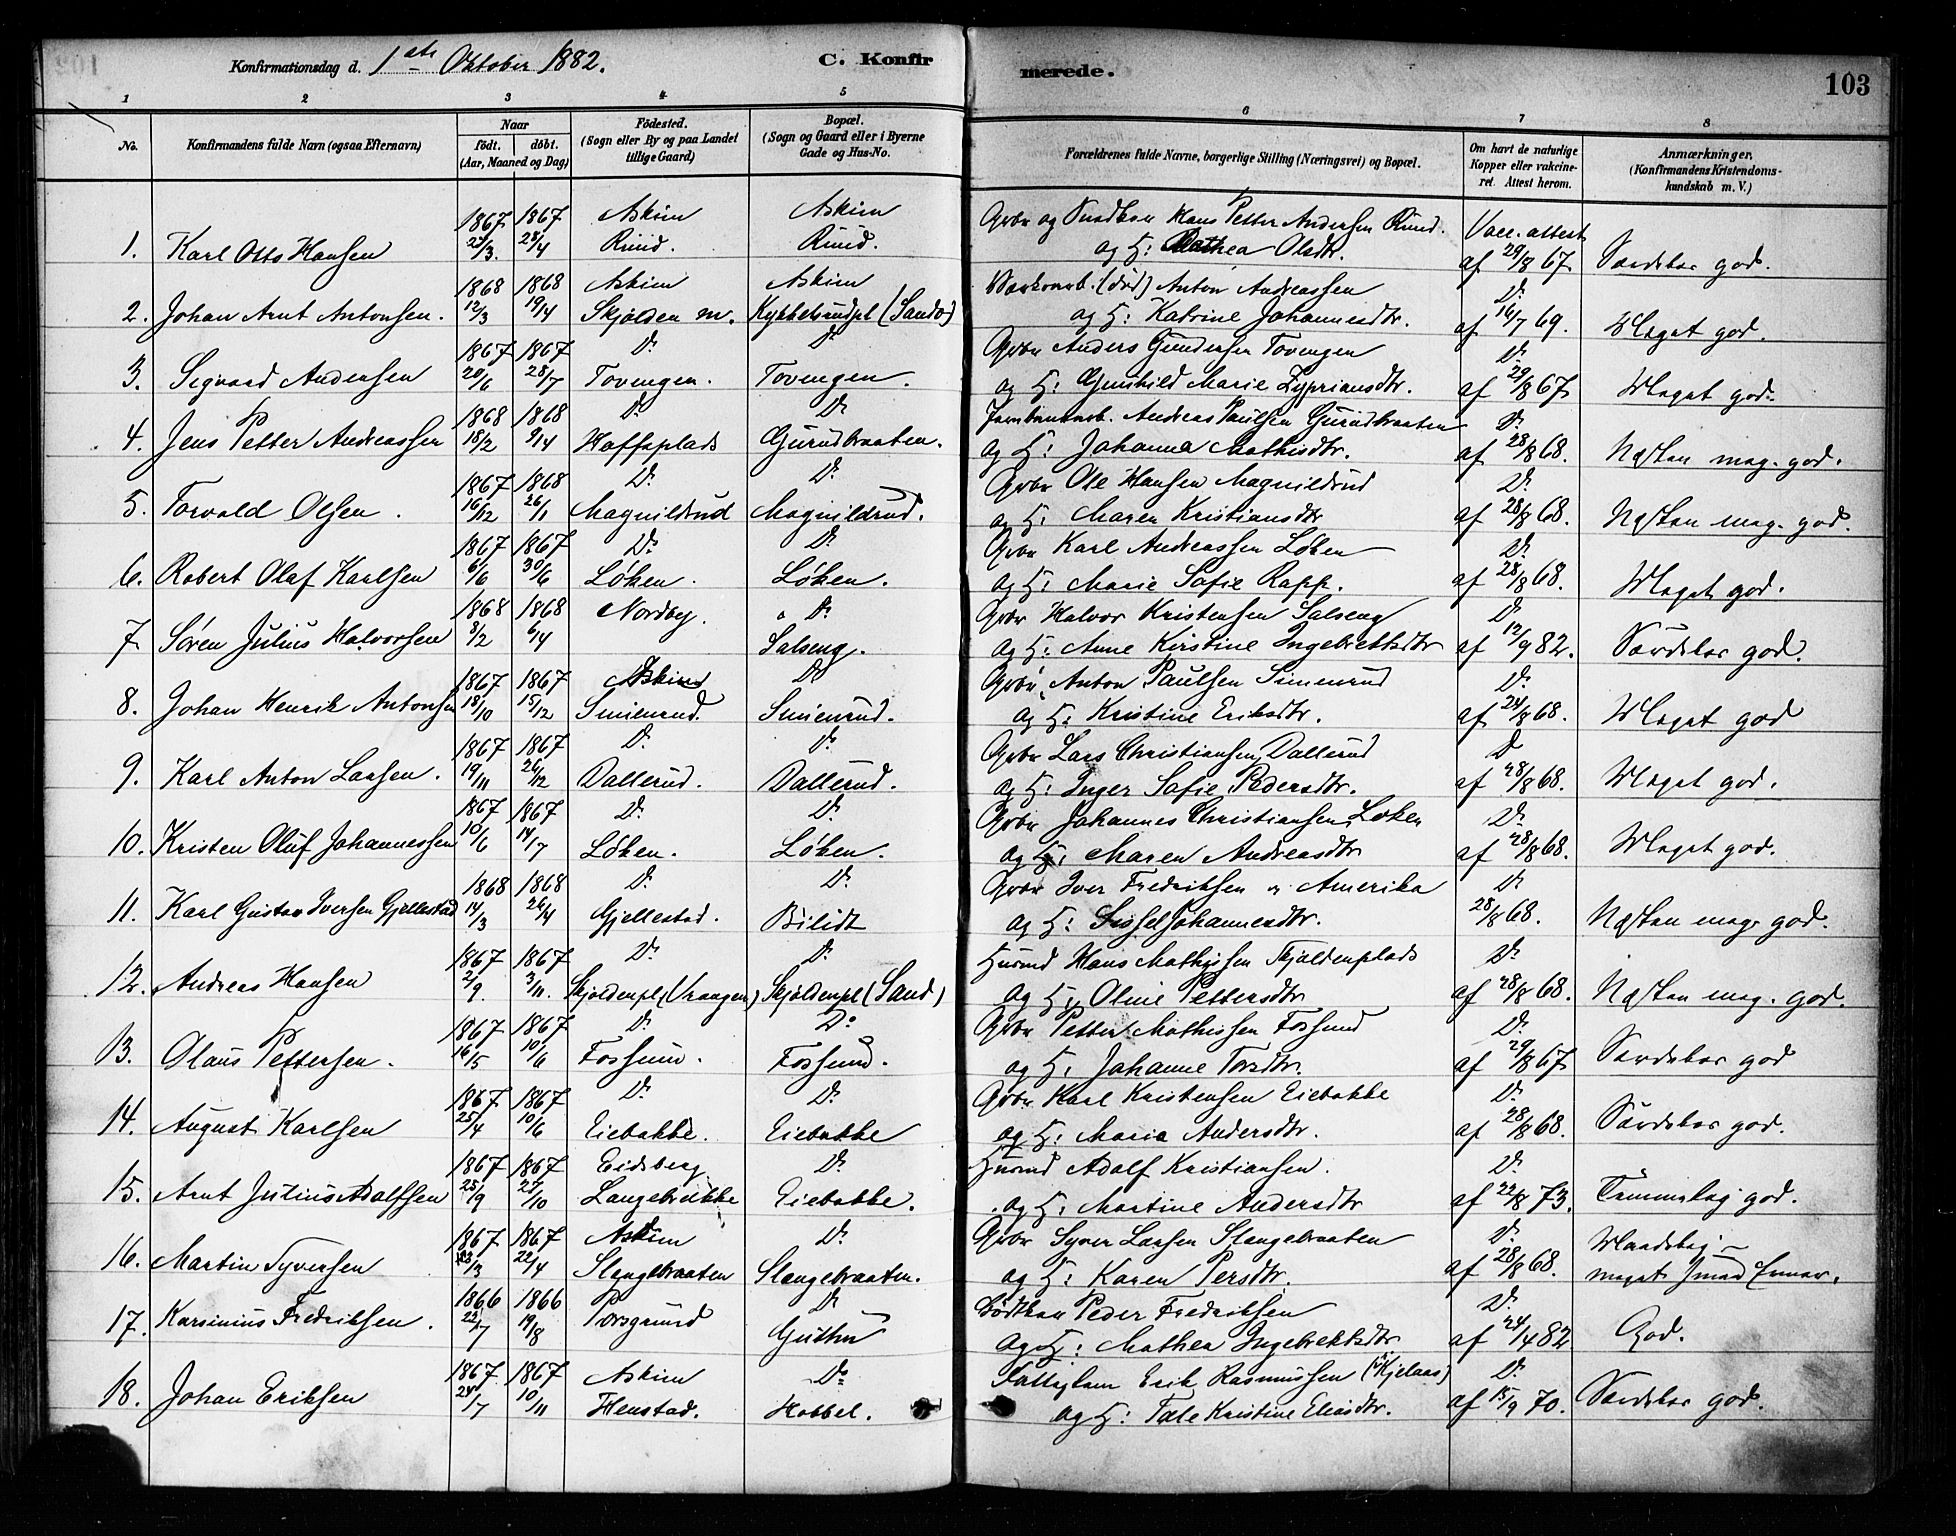 Konfirmationsdag d. 1ste Oktober 1882. C. Konfirmerede. 103
1 2 3 4 5 6 7 8
No. Konfirmandens fulde Navn (ogsaa Efternavn) Naar født. døbt. (Aar, Maaned og Dag) Fødested. (Sogn eller By og paa Landet tillige Gaard) Bopæl. (Sogn og Gaard eller i Byerne Gade og Hus-No. Forældrenes fulde Navne, borgerlige Stilling (Næringsvei) og Bopæl. Om havt de naturlige Kopper eller vakcineret. Attest herom. Anmærkninger. (Konfirmandens Kristendomskundskab m. V.)
1867 1867 Askim Askim Gbr og Hans Petter Andersen Ruud. Vacc. attest
1. Karl Otto Hansen 23/3. 28/4 Ruud. Ruud. og H: Mathea Olsdtr. af 29/8 67 Særdeles god.
1868 1868 Askim Askim (død) Anton Andreassen Do
2. Johan Arnt Antonsen. 12/3 19/4 Skjolden m. Kykkelsrudpl (Sando) og H: Katrine Johannesdtr. af 16/7 69. Meget god.
1867 1867 Do Do Gbr Anders Gundersen Tovengen Do
3. Sigvard Andersen 20/6 28/7 Tovengen. Tovengen. og H: Gunhild Marie Zypriansdtr. af 29/8 67 Meget god.
1868 1868 Do Do Jernbanearb. Andreas Paulsen Gurudbraaten Do
4. Jens Petter Andreassen 18/2 9/4 Haffsplads Gurudbraaten. og H: Johanna Mathisdtr. af 28/8 68. Næsten meg. god.
1867 1868 Do Do Gbr Ole Hansen Magnildrud Do
5. Torvald Olsen. 16/12 26/1 Magnildrud Magnildrud. og H: Maren Kristiansdtr af 28/8 68. Næsten meg. god.
1867 1867 Do Do Gbr Karl Andreassen Løken Do
6. Robert Olaf Karlsen 6/6 30/6 Løken. Løken. og H: Marie Sofie Rapp. af 28/8 68. Meget god.
1868 1868 Nordby. Do Gbr Halvor Kristensen Salseng Do
7 Søren Julius Halvorsen 8/2 6/4 Salseng. og H: Anne Kirstine Ingebretsdtr af 12/9 82. Særdeles god.
1867 1867 Askim Do Gbr Anton Paulsen Simenrud Do
8. Johan Henrik Antonsen 18/10 15/12 Simenrud. Simenrud. og H: Kristine Eriksdtr. af 24/8 68. Meget god
1867 1867 Do Do Gbr Lars Christiansen Dallerud Do
9. Karl Anton Larsen. 19/11 26/12 Dallerud. Dallerud. og H: Inger Sofie Pedersdtr. af 28/8 68. Meget god.
1867 1867 Do Do Gbr Johannes Christiansen Løken Do
10. Kristen Oluf Johannessen 10/6 14/7 Løken. Løken. og H: Maren Andreasdtr af 28/8 68. Meget god.
1868 1868 Do Do Gbr Iver Fredriksen i Amerika Do
11. Karl Gustav Iversen Gjellestad 14/3 26/4 Gjellestad. Bilidt og H: Sissel Johannesdtr. 28/8 68. Næsten meg. god.
1867 1867 Do Do Husmd Hans Mathisen Skjoldenplads Do
12. Andreas Hansen 2/9. 3/11. Skjoldenpl (Vraagen) Skjoldenpl (Sand) og H: Oline Pettersdtr af 28/8 68. Næsten meg. god.
1867 1867 Do Do Gbr Petter Mathissen Fossum Do
13. Olaus Pettersen. 16/5 10/6 Fossum. Fossum. og H: Johanne Torsdtr. af 29/8 67 Særdeles god
1867 1867 Do Do Gbr Karl Kristensen Eiebakke Do
14. August Karlsen 25/4 10/6 Eiebakke. Eiebakke og H: Maria Andersdtr. af 28/8 68. Særdeles god.
1867 1867 Eidsberg Do Husmd Adolf Kristiansen. Do
15. Arnt Julius Adolfsen 25/9 27/10 Langebrekke Eiebakke. og H: Martine Andersdtr af 22/8 73. Temmelig god.
1867 1867 Askim Do Gbr Syver Larsen Slangebraaten Do
16. Martin Syversen 23/3 22/4 Slangebraaten Slangebraaten. og H: Karen Persdtr. af 28/8 68.
1866 1866 Porsgrund Do Peder Fredriksen Do
17. Karsinius Fredriksen. 22/7 19/8 og H: Mathea Ingebretsdtr af 24/4 82 God.
1867 1867 Askim Do Fattiglem Erik Rasmussen (Kjelaas) Do
18. Johan Eriksen 24/7 10/11 Henstad. Hobbel. og H: Tale Kristine Eliasdtr. af 15/9 70. Særdeles god.